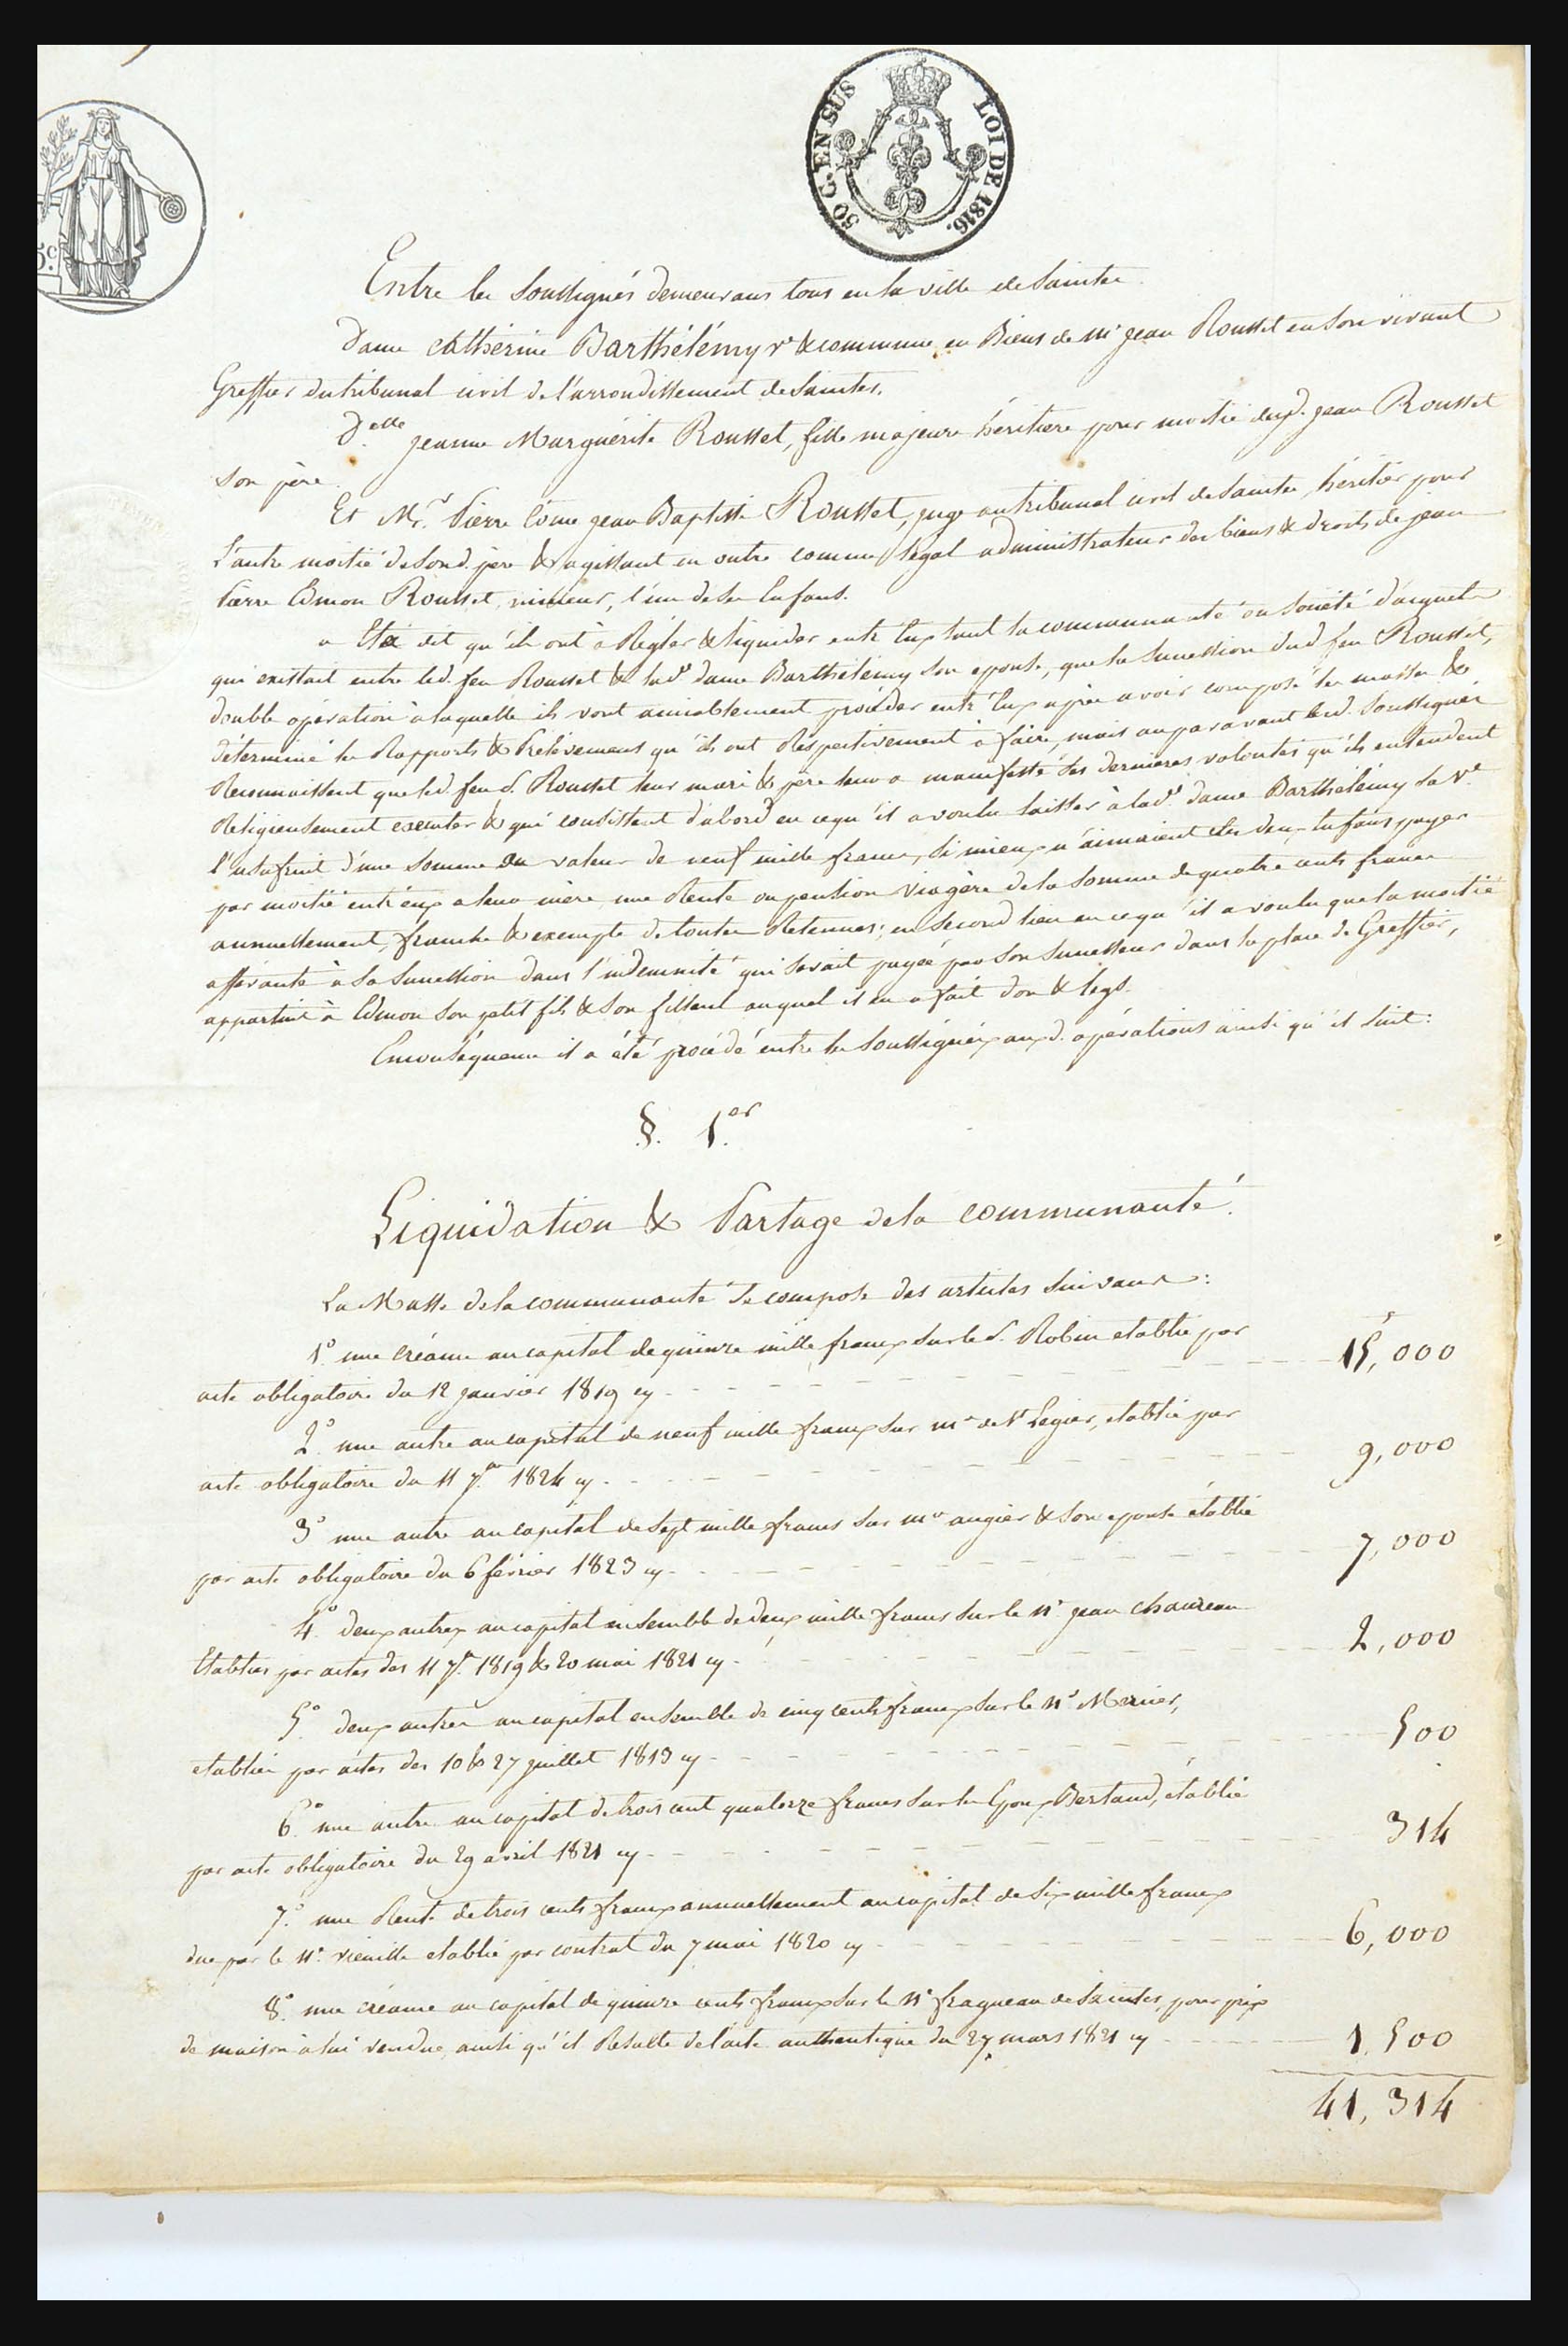 50 C. EN SUS LOI DE 1816.
5c.
Entre les soussignés demeurans tous en la ville de Saintes
Dame Cathérine Barthélémy Ve & commune en Biens de Mr Jean Rousset en son vivant
Greffier du tribunal civil de l'arrondissement de Saintes.
Delle Jeanne Marguérite Rousset, fille majeure héritière pour moitié dud. jean Rousset
son père.
Et Mr. Pierre Côme jean Baptiste Rousset, juge au tribunal civil de Saintes, héritier pour
l'autre moitié de sond. père & agissant en outre comme légal administrateur des biens & droits de jean
Pierre Edmon Rousset, mineur, l'un de ses Enfans.
a Eté dit qu'ils ont à Régler & liquider entr'Eux tant la communauté ou Société d'acquets
qui existait entre led. feu Rousset & lad. dame Barthélémy son epouse, que la succession dud. feu Rousset,
double opération à laquelle ils vont amiablement procéder entr'Eux après avoir composé les masses &
déterminé les Rapports & Prélèvemens qu'ils ont Respectivement à faire, mais auparavant lesd. soussignés
Reconnaissent que led. feu S. Rousset leur mari & père leur a manifesté ses dernières volontés qu'ils entendent
Religieusement exécuter & qui consistent d'abord en ce qu'il a voulu laisser à lad. dame Barthélémy sa Ve
l'usufruit d'une somme ou valeur de neuf mille francs, si mieux n'aimaient ses deux Enfans payer
par moitié entr'eux a leur mère une Rente ou pension Viagère de la somme de quatre cents francs
annuellement, franche & exempte de toutes Retenues; en Second lieu en ce qu'il a voulu que la moitié
afférante à sa succession dans l'indemnité qui serait payée par son successeur dans la place de Greffier,
appartint à Edmon son petit fils & son filleul auquel il en a fait don & legs.
En conséquence il a été procédé entre les soussignés auxd. opérations ainsi qu'il suit:
§. 1.er
Liquidation & Partage de la communauté.
La Masse de la communauté se compose des articles suivans:
1º. une créance au capital de quinze mille francs sur le S. Robin etablie par
acte obligatoire du 12 janvier 1819 cy - 15,000
2º. une autre au capital de neuf mille francs sur mr de St Legier, etablie par
acte obligatoire du 11 7.bre 1824 cy - 9,000
3º une autre au capital de sept mille francs sur mr augier & son epouse établie
par acte obligatoire du 6 février 1823 cy - 7,000
4º. deux autres au capital ensemble de deux mille francs sur le Né jean chauveau
Etablies par actes des 11 7.bre 1819 & 20 mai 1821 cy - 2,000
5º deux autres au capital ensemble de cinq cents francs sur le Né
etablies par actes des 10 & 27 juillet 1813 cy - 500
6º. une autre au capital de trois cent quatorze francs sur les Epoux Bertaud, établie
par acte obligatoire du 29 avril 1821 cy - 314
7º. une Rente de trois cents francs annuellement au capital de six mille francs
due par le Né. Vieuille etablie par contrat du 7 mai 1820 cy - 6,000
8º. une créance au capital de quinze cents francs sur le Né fragneau de Saintes, pour prix
de maison à lui vendue, ainsi qu'il Résulte de l'acte authentique du 27 mars 1821 cy - 1,500
41,314